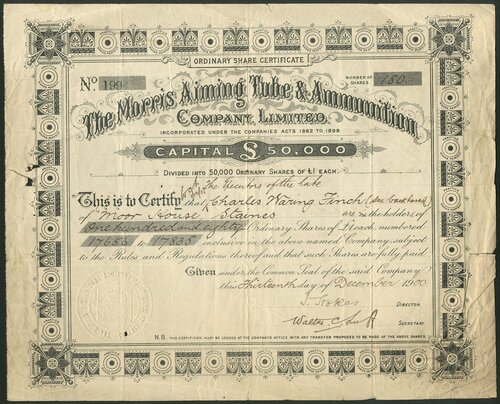 ORDINARY SHARE CERTIFICATE
No 199
NUMBER OF SHARES 180
The Morris Aiming Tube & Ammunition
COMPANY, LIMITED.
INCORPORATED UNDER THE COMPANIES ACTS 1862 TO 1898.
CAPITAL £50,000
DIVIDED INTO 50,000 ORDINARY SHARES OF £1 EACH.
The Executors of the late
This is to Certify that Charles Waring Finch
of Moor House, Staines are the holders of
One hundred and eighty Ordinary Shares of £1 each numbered
17656 to 17835 inclusive in the above named Company subject
to the Rules and Regulations thereof and that such Shares are fully paid
Given under the Common Seal of the said Company
this Thirteenth day of December 1900
S. Stokes DIRECTOR.
Walter C. SECRETARY.
N.B. THIS CERTIFICATE MUST BE LODGED AT THE COMPANY'S OFFICE WITH ANY TRANSFER PROPOSED TO BE MADE OF THE ABOVE SHARES.